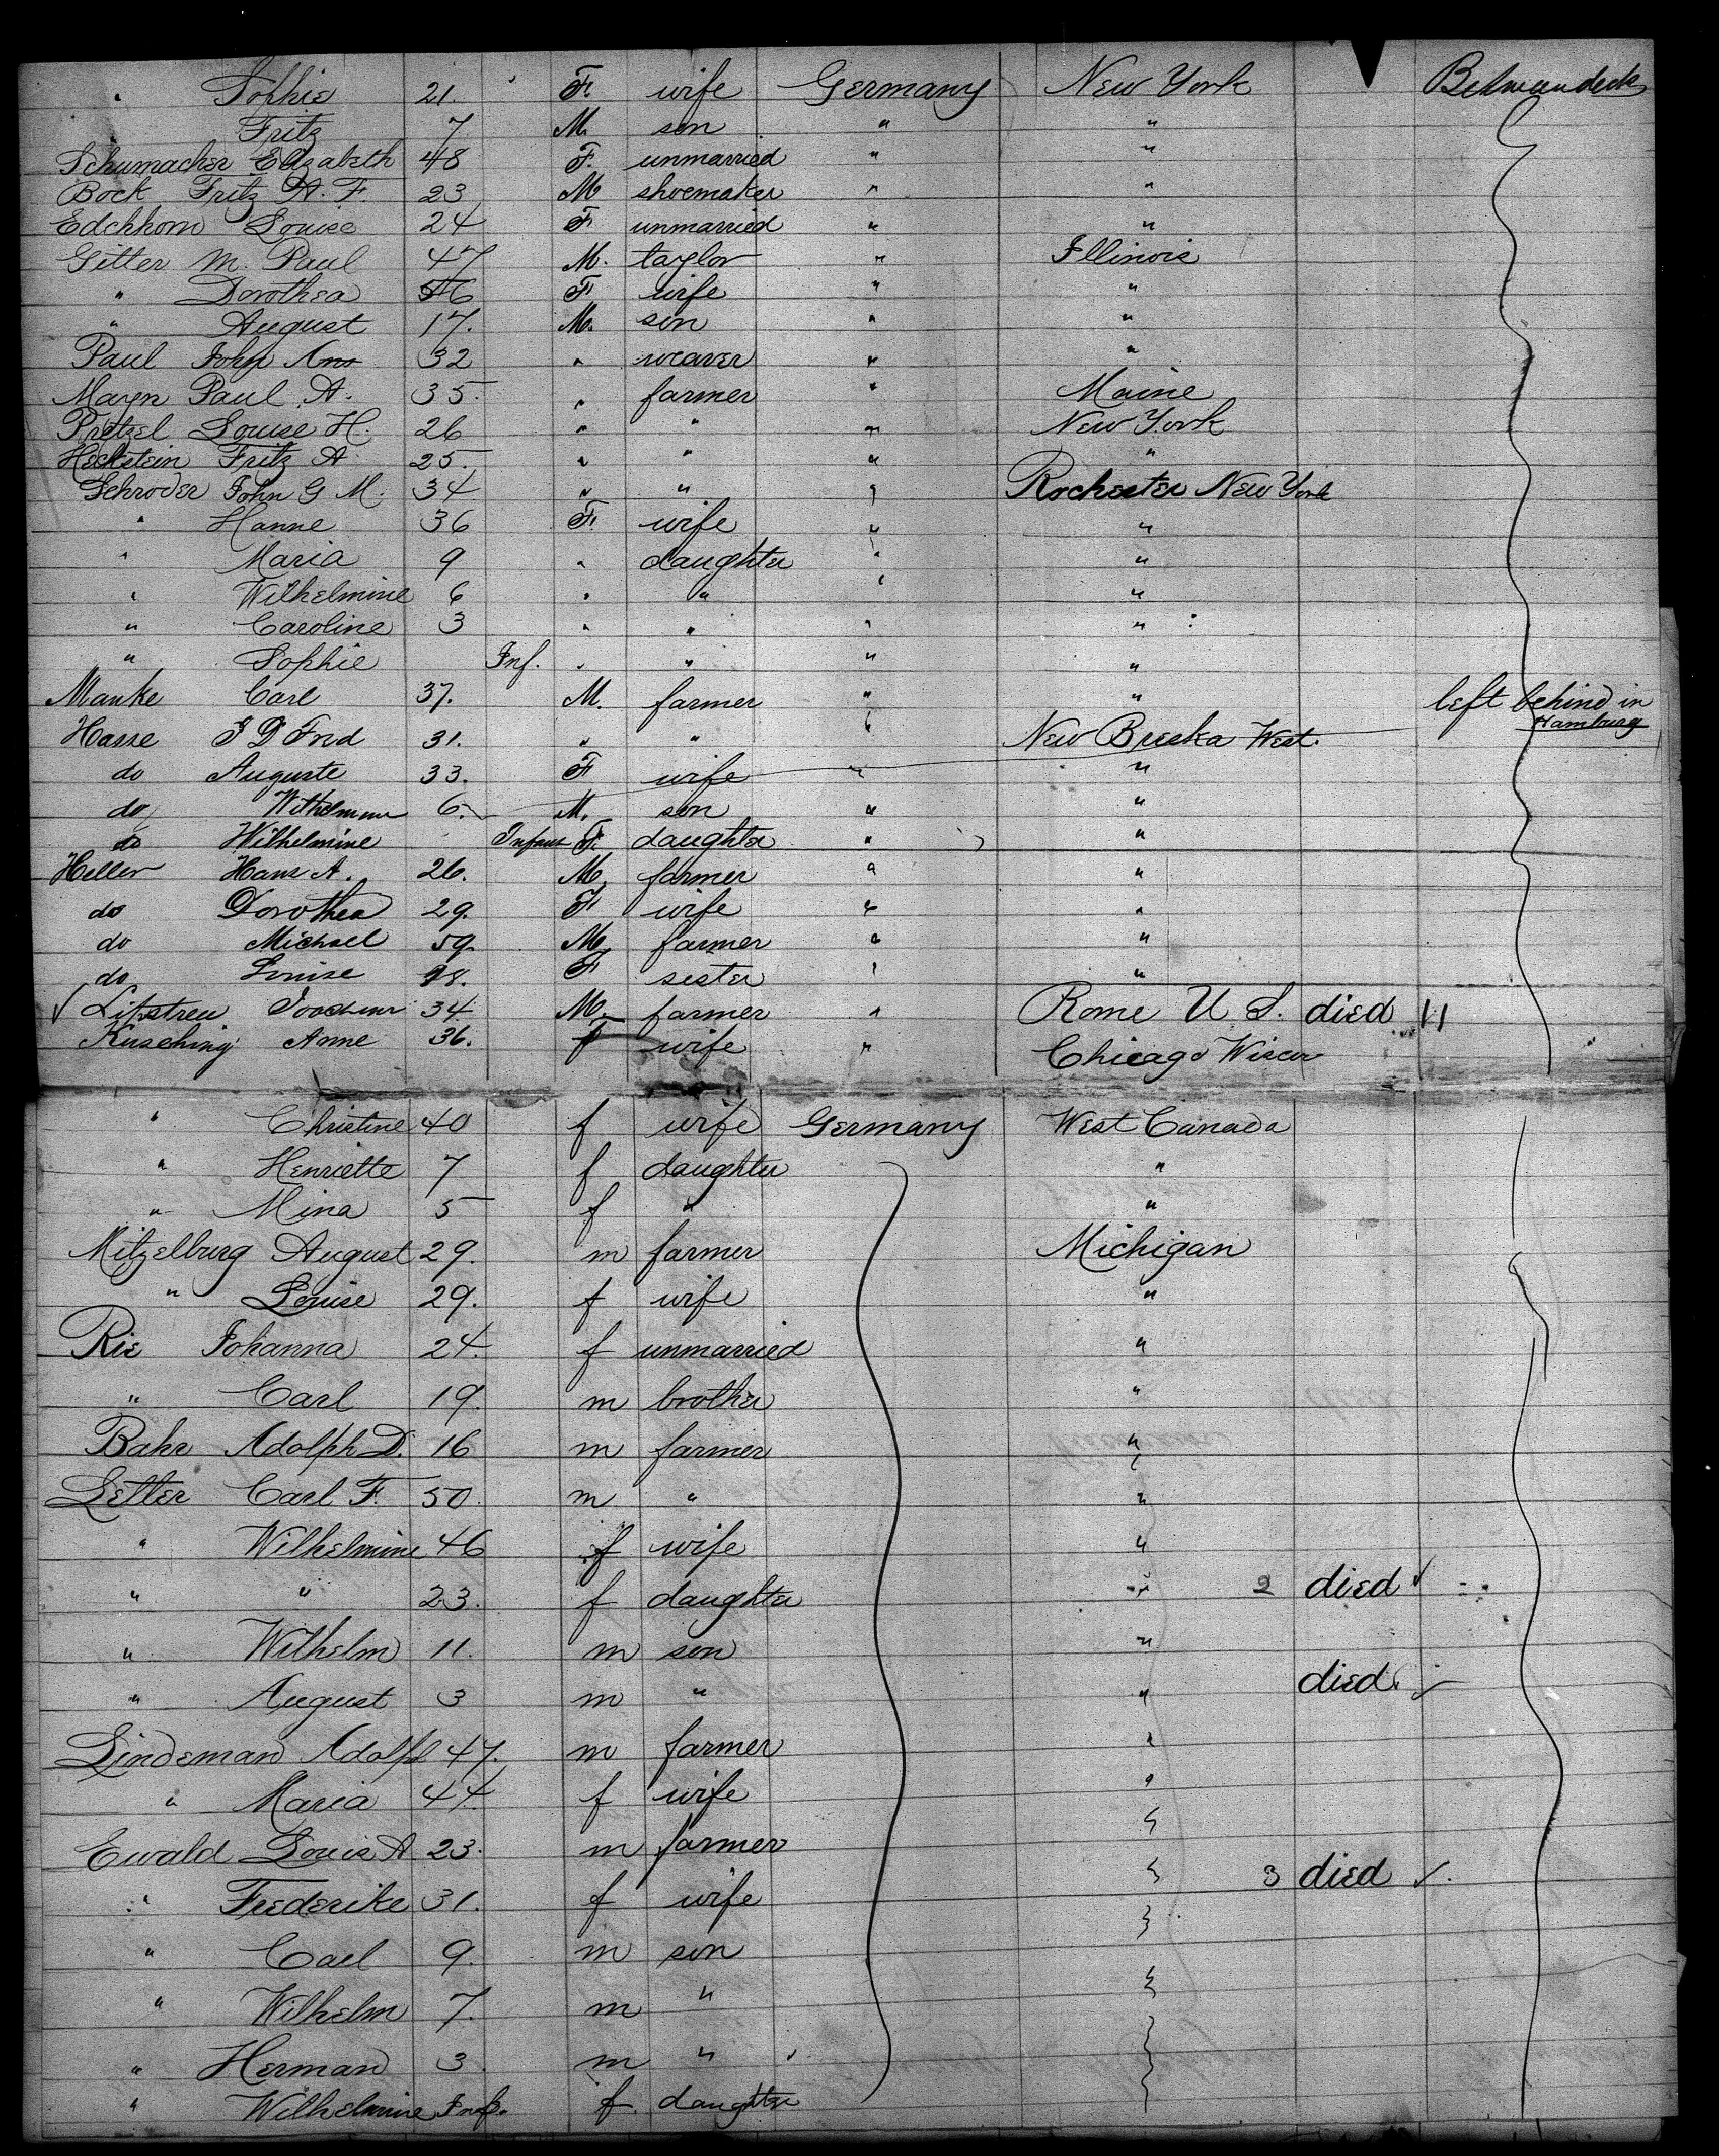 " Sophie 21. F. wife Germany New York
Fritz 7 M. son " "
Schumacher Elizabeth 48 F. unmarried " "
Bock Fritz A. F. 23 M. shoemaker " "
Edchhorn Louise 24 F unmarried " "
Gitter M. Paul 47 M. taylor " Illinois
" Dorothea 46 F wife " "
" August 17. M. son " "
Paul John 32 " weaver " "
Mayn Paul A. 35. " farmer " Maine
Pretzel Louise H. 26 " " " New York
Heckstein Fritz A 25. " " " "
Schroder John G M. 34 " " " Rochester New York
" Hanne 36 F. wife " "
" Maria 9 " daughter " "
" Wilhelmine 6 " " " "
" Caroline 3 " " " "
" Sophie Inf. " " " "
Manke Carl 37. M. farmer " " left behind in Hamburg
Hasse 31. " " " New Breska West.
do Auguste 33. F wife " "
do 6. M. son " "
do Wilhelmine Infant F. daughter " "
Heller Hans A. 26. M. farmer " "
do Dorothea 29. F wife " "
do Michael 59. M. farmer " "
do Louise F sister " "
✓ Lipstreu 34 M. farmer " Rome U S. died
Kusching Anne 36. f wife " Chicago
" Christine 40 f wife Germany West Canada
" Henriette 7 f daughter "
" Mina 5 f " "
Mitzelburg August 29. m farmer Michigan
" Louise 29. f wife "
Rie Johanna 24. f unmarried "
" Carl 19. m brother "
Bahr Adolph D. 16 m farmer "
Letter Carl F. 50. m " "
" Wilhelmine 46 f wife "
" " 23. f daughter " 2 died ✓
" Wilhelm 11. m son "
" August 3 m " " died.
Lindeman Adolf 47. m farmer "
" Maria 44. f wife "
Ewald Louis A 23. m farmer
" Frederike 31. f wife 3 died ✓
" Carl 9. m son
" Wilhelm 7. m "
" Herman 3. m "
" Wilhelmine Inf. f. daughter